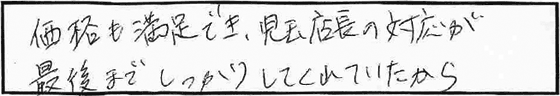 価格も満足でき、児玉店長の対応が
最後までしっかりしてくれていたから